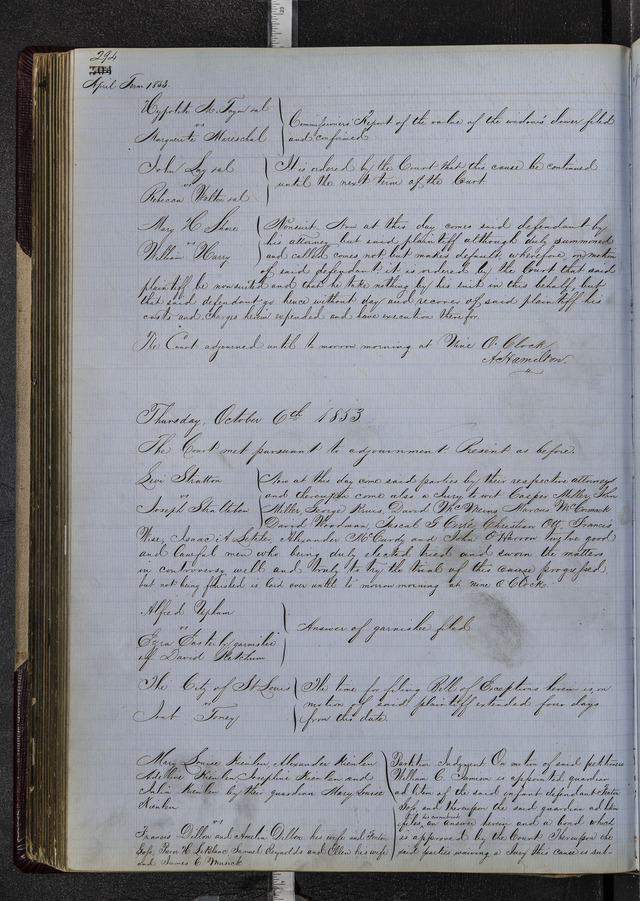 294
April Term 1853.
Hypolite M. et al
vs
Marguerite Mareschal
Commissioners' Report of the value of the widows' dower filed
and confirmed
John Lay et al
vs
Rebecca et al
It is ordered by the Court that this cause be continued
until the next term of the Court.
Mary H Shore
vs
William Harry
Nonsuit. Now at this day comes said defendant by
his attorney but said plaintiff although duly summoned
and called comes not but makes default wherefore on motion
of said defendant it is ordered by the Court that said
plaintiff be nonsuited and that he take nothing by his suit in this behalf, but
that said defendant go hence without day and recover of said plaintiff his
costs and charges herein expended and have execution therefor.
The Court adjourned until to morrow morning at Nine O. Clock
A Hamilton
Thursday, October 6th 1853
The Court met pursuant to adjournment Present as before.
Levi Stratton
vs
Joseph
Now at this day come said parties by their respective attorneys
and thereupon come also a Jury to wit Casper Miller,
Miller, George David Marcus McCormack
David Woodman, Christian Francis
Wise, Isaac A Alexander McCurdy and John twelve good
and lawful men who being duly elected tried and sworn the matters
in controversy well and truly to try the trial of this cause progressed
but not being finished is laid over until to morrow morning at nine O Clock.
Alfred Upham
vs
Ezra garnishee
of David Ketchum
Answer of garnishee filed
The City of St Louis
vs
Toney
The time for filing Bill of Exceptions herein is on
motion of said plaintiff extended four days
from this date.
Mary Louise Kienlen, Alexander Kienlen
Adelline Kienlen Josephine Kienlen and
Julia Kienlen by their guardian Mary Louise
Kienlen
vs
Francis Dillon and Amelia Dillon his wife and
H. LeBlanc Samuel Reynolds and Ellen his wife
and James C Musick
Partition Judgment On motion of said petitioners
William C. Jamison is appointed guardian
ad litem of the said infant defendant
and thereupon the said guardian ad litem
files an answer herein and a bond which
is approved by the Court Thereupon the
said parties waiving a Jury this cause is sub-